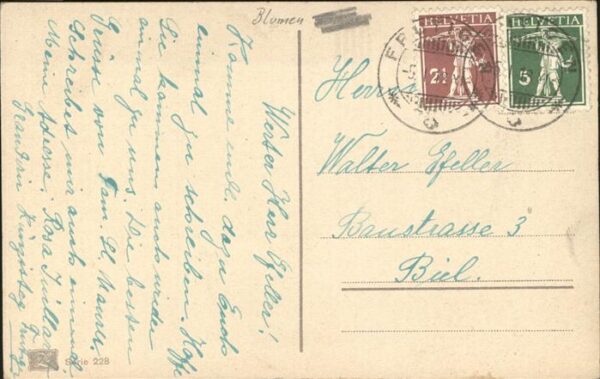 Blumen
Werter Herr Efeller!
Komme endl. dazu Euch
einmal zu schreiben. Hoffe
Sie kommen auch wieder
einmal zu uns. Die besten
Grüsse von Fam. St. Maurer.
Schreibet mir auch einmal.
Mein Adresse: Rosa
Serie 228
HELVETIA
2½
HELVETIA
5
Herrn
Walter Efeller
Baustrasse 3
Biel.